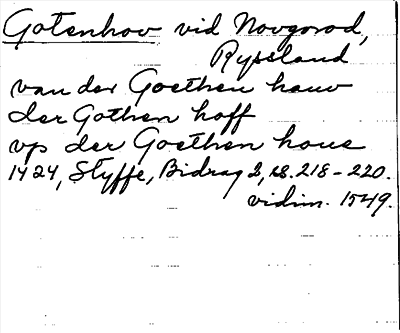 Gotenhov vid Novgorod,
Ryssland
van der Goethen hauv
der Gothen hoff
vp der Goethen houe
1424, Styffe, Bidrag 2, s. 218-220.
vidim. 1549.